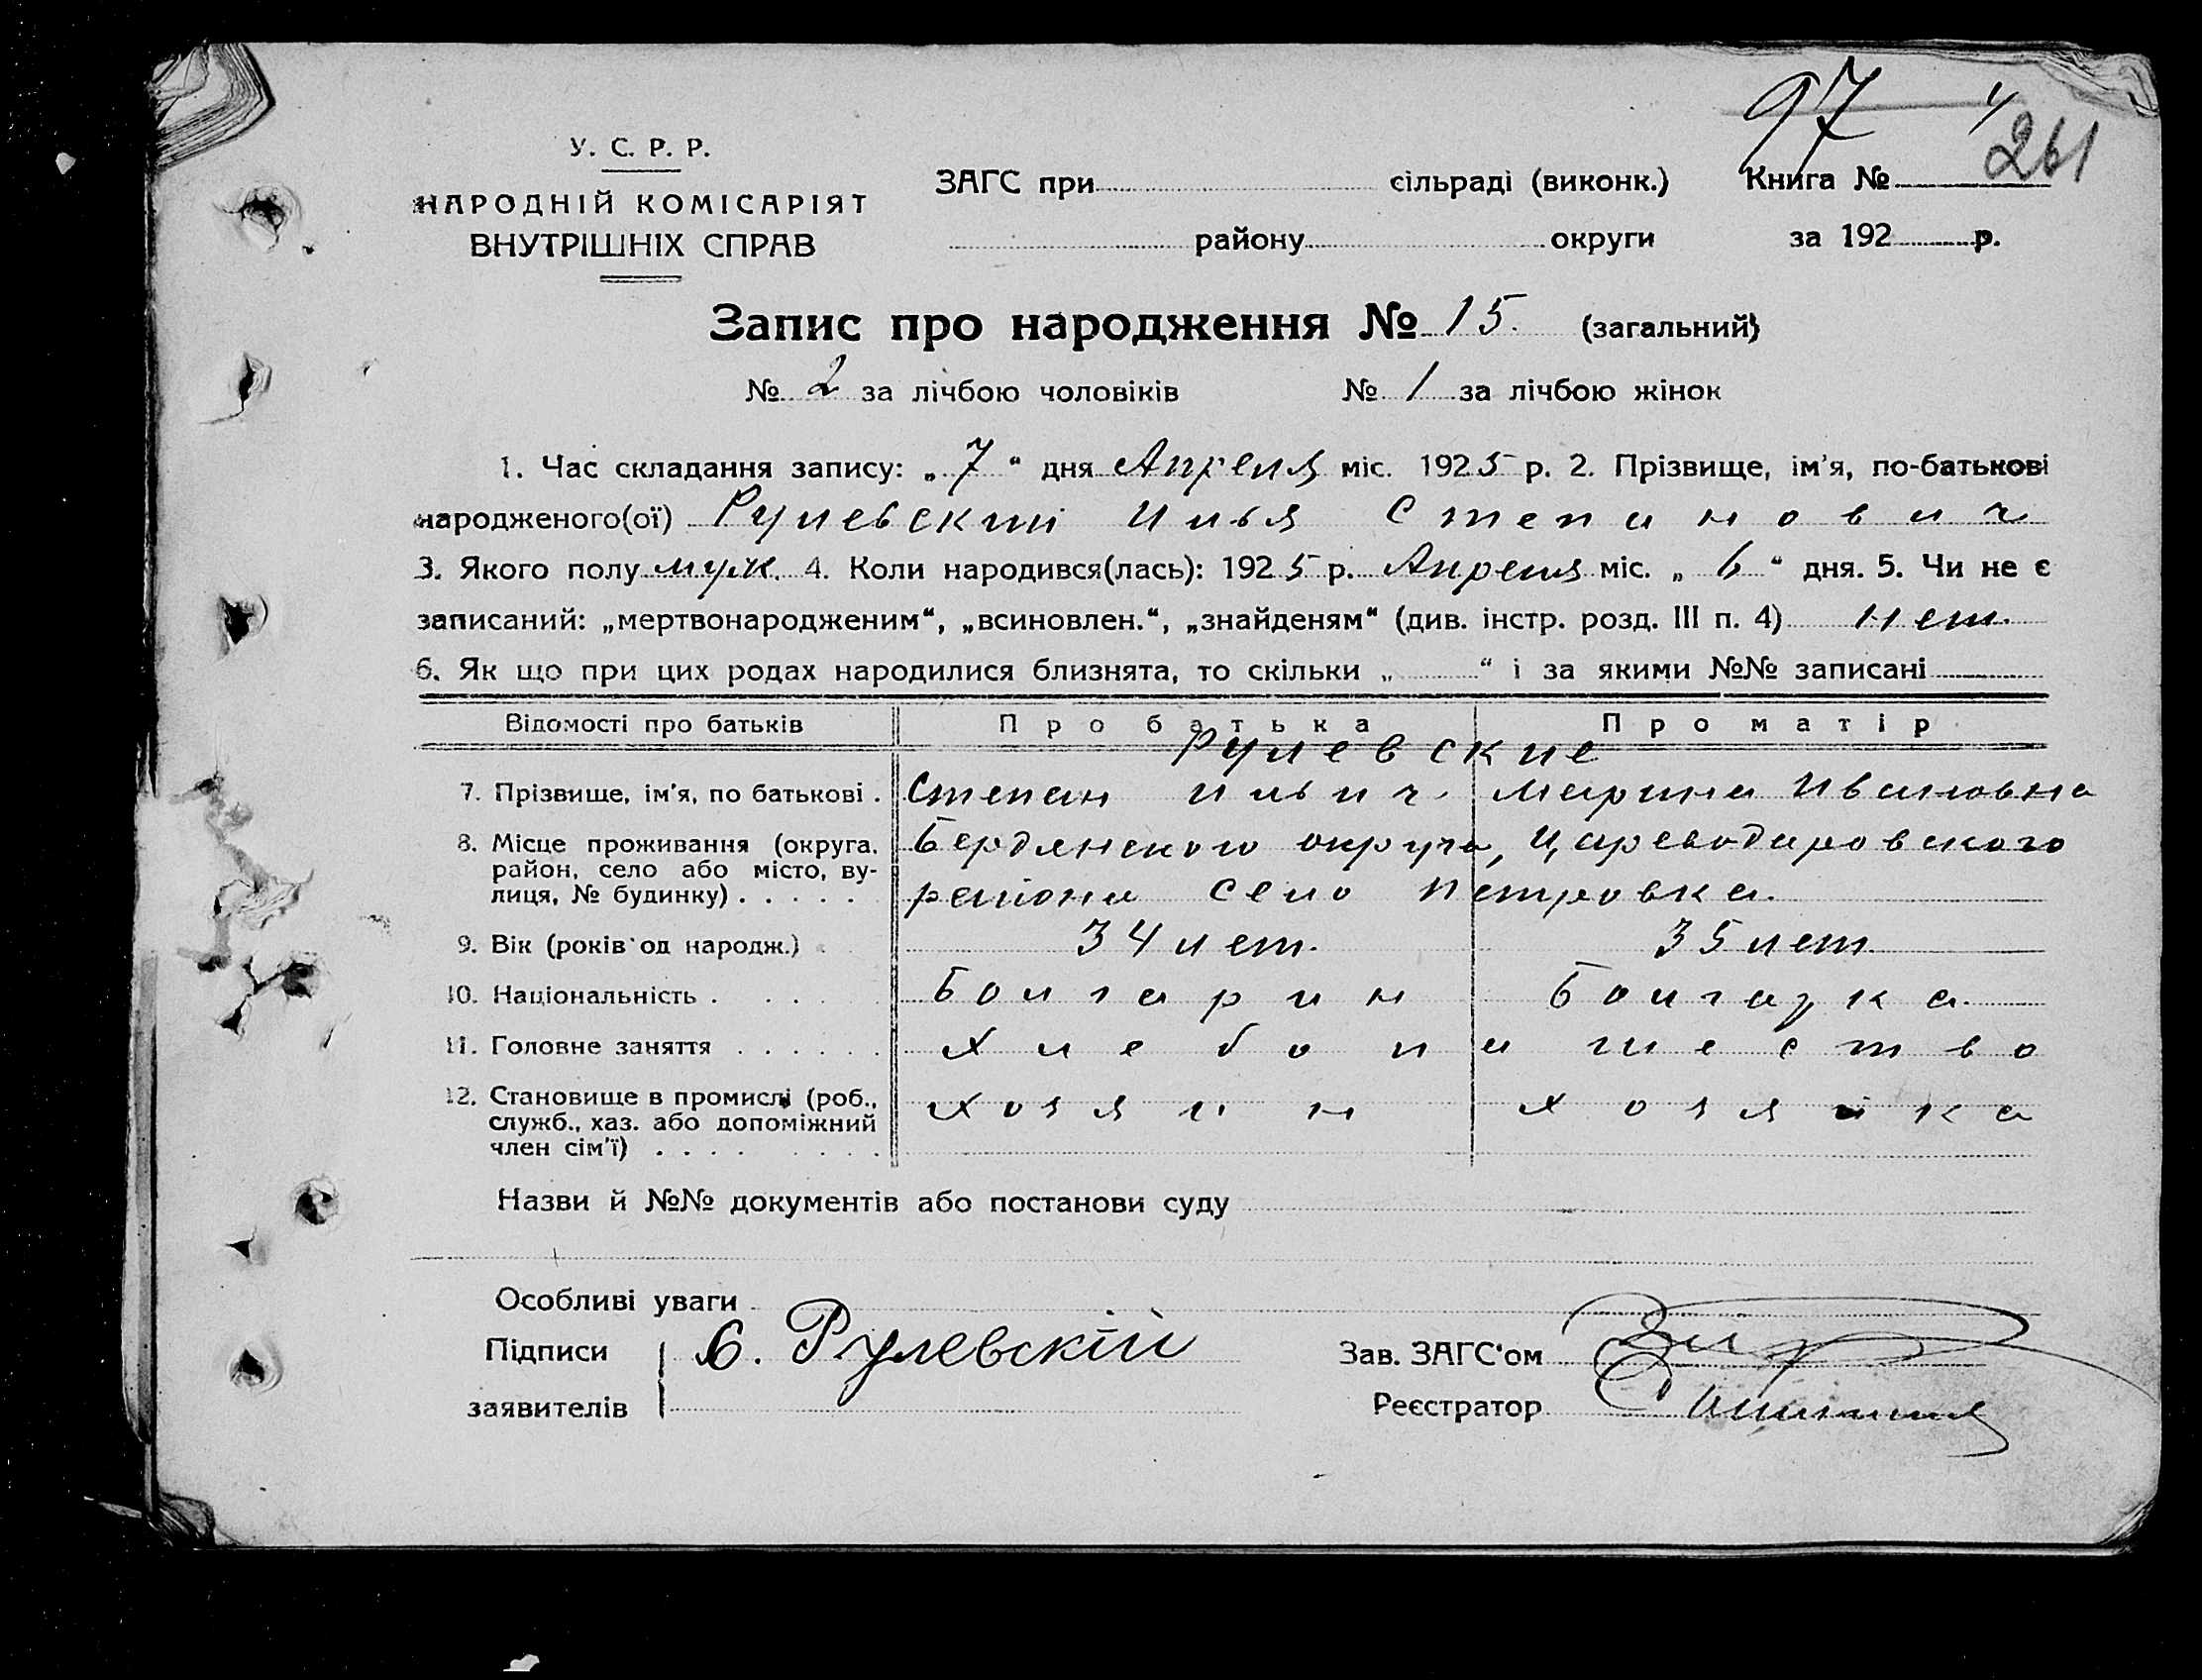 97
261
У. С. Р. Р.
НАРОДНІЙ КОМІСАРІЯТ
ВНУТРІШНІХ СПРАВ
ЗАГС при сільраді (виконк.) Книга №
району округи за 192 р.
Запис про народження № 15. (загальний)
№ 2 за лічбою чоловіків № 1 за лічбою жінок
1. Час складання запису: „ 7 “ дня Апреля міс. 1925 р. 2. Прізвище, ім’я, по-батькові
народженого(ої) Рулевский Илья Степанович
3. Якого полу муж. 4. Коли народився(лась): 1925 р. Апреля міс. „ 6 “ дня. 5. Чи не є
записаний: „мертвонародженим“, „всиновлен.“, „знайденям“ (див. інстр. розд. III п. 4) нет.
6. Як що при цих родах народилися близнята, то скільки „ “ і за якими №№ записані
Відомості про батьків Про батька Про матір
Рулевские
7. Прізвище, ім’я, по батькові . Степан Ильич Марина Ивановна
8. Місце проживання (округа, Бердянского округа, Цареводаровского
район, село або місто, ву-
лиця, № будинку) . . . . . района село Петровка.
9. Вік (років од народж.) 34 лет. 35 лет.
10. Національність . . . . . Болгарин Болгарка.
11. Головне заняття . . . . . . Хлебопашество
12. Становище в промислі (роб., Хозяин Хозяйка
служб., хаз. або допоміжний
член сім’ї) . . . . . . . .
Назви й №№ документів або постанови суду
Особливі уваги
Підписи С. Рулевскій Зав. ЗАГС’ом
заявителів Реєстратор